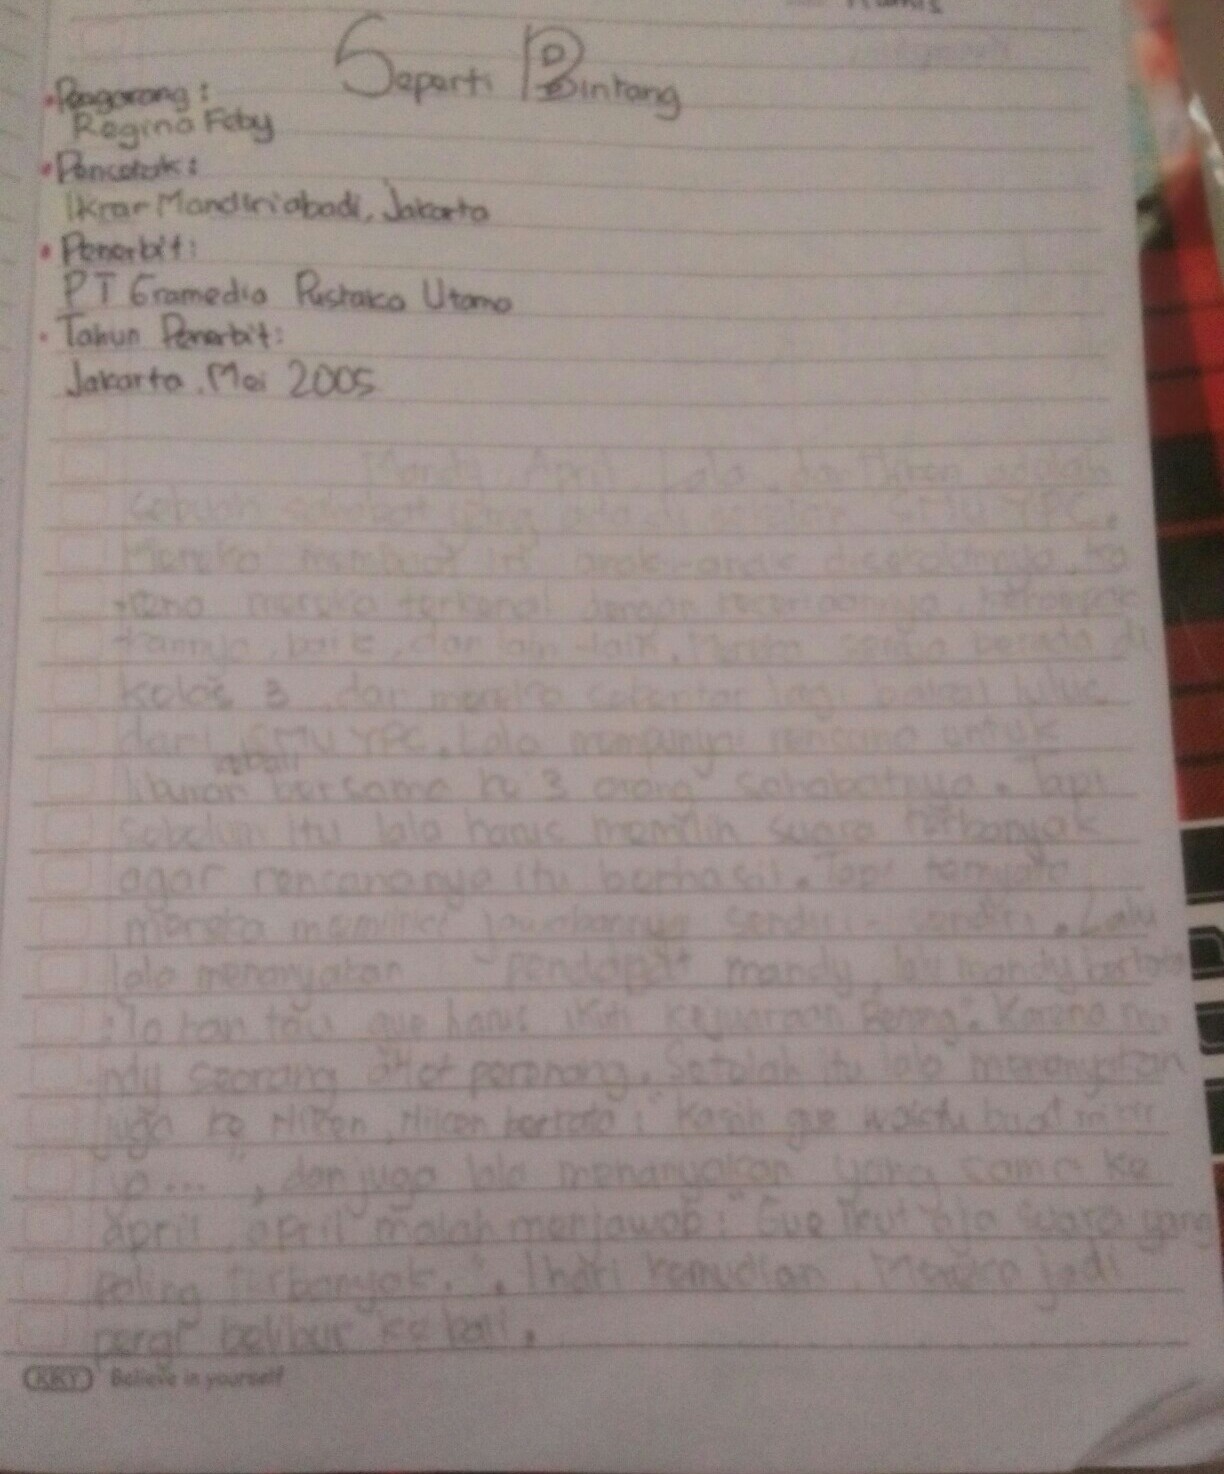 Seperti Bintang
• Pengarang :
Regina Feby
• Pencetak :
Ikrar Mandiriabadi, Jakarta
• Penerbit :
PT Gramedia Pustaka Utama
• Tahun Penerbit :
Jakarta, Mei 2005
Mandy, April, Lala, dan Niken adalah
sebuah sahabat yang ada di sekolah SMU YPC.
Mereka membuat iri anak-anak disekolahnya, ka
rena mereka terkenal dengan keceriaannya, kekompak
kannya, baik, dan lain-lain. Mereka semua berada di
kelas 3, dan mereka sebentar lagi bakal lulus
dari SMU YPC. Lala mempunyai rencana untuk
kebali
liburan bersama ke 3 orang sahabatnya. Tapi
sebelum itu lala harus memilih suara terbanyak
agar rencananya itu berhasil. Tapi ternyata
mereka memiliki jawabannya sendiri-sendiri. Lalu
lala menanyakan pendapat mandy, lalu mandy berkata
: "lo kan tau gue harus ikut kejuaraan Renang". Karena ma
ndy seorang atlet perenang. Setelah itu lala menanyakan
juga ke Niken, Niken berkata : "Kasih gue waktu buat mikir
ya...", dan juga lala menanyakan yang sama ke
april, april malah menjawab : "Gue ikut aja suara yang
paling terbanyak.". 1 hari kemudian, Mereka jadi
pergi belibur ke bali.
KKY Believe in yourself